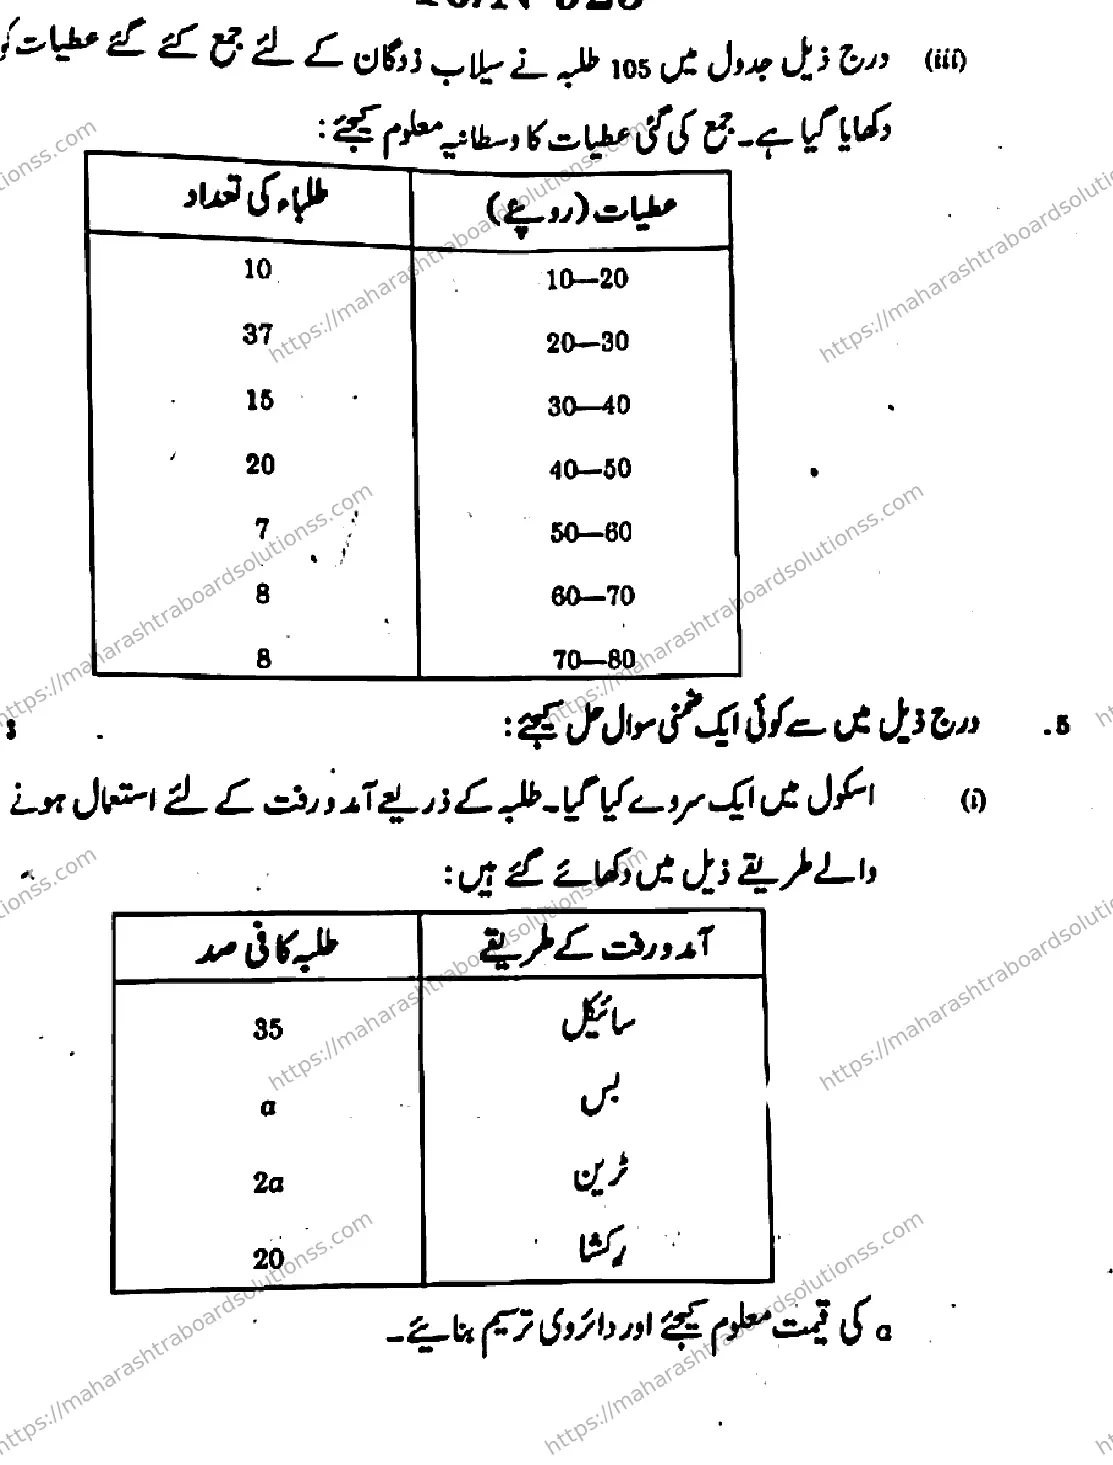 (iii) درج ذیل جدول میں 105 طلبہ نے سیلاب زدگان کے لئے جمع کئے گئے عطیات کو
دکھایا گیا ہے۔ جمع کی گئی عطیات کا وسطانیہ معلوم کیجئے:
عطیات (روپے) طلباء کی تعداد
10—20 10
20—30 37
30—40 15
40—50 20
50—60 7
60—70 8
70—80 8
5. درج ذیل میں سے کوئی ایک ضمنی سوال حل کیجئے: 3
(i) اسکول میں ایک سروے کیا گیا۔ طلبہ کے ذریعے آمد و رفت کے لئے استعمال ہونے
والے طریقے ذیل میں دکھائے گئے ہیں:
آمد و رفت کے طریقے طلبہ کا فی صد
سائیکل 35
بس a
ٹرین 2a
رکشا 20
a کی قیمت معلوم کیجئے اور دائروی ترسیم بنائیے۔
https://maharashtraboardsolutionss.com